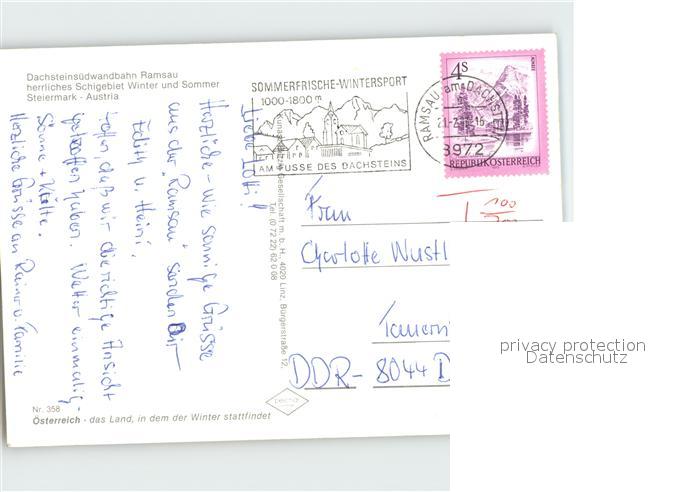 Dachsteinsüdwandbahn Ramsau
herrliches Schigebiet Winter und Sommer
Steiermark - Austria
SOMMERFRISCHE-WINTERSPORT
1000-1800 m
AM FUSSE DES DACHSTEINS
4s
REPUBLIK ÖSTERREICH
RAMSAU am DACHSTEIN
8972
Liebe Lotti!
Herzliche wie sonnige Grüsse
aus der "Ramsau" senden Dir
Edith u. Heini.
hoffen, daß wir die richtige Ansicht
getroffen haben. Wetter einmalig -
Sonne + Kälte.
Herzliche Grüsse an Rainer u. Familie
gesellschaft m. b. H., 4020 Linz, Bürgerstraße 12,
Tel. (0 72 22) 62 0 08
Frau
Charlotte Wustl
DDR- 8044 D
100
privacy protection
Datenschutz
Nr. 358
Österreich - das Land, in dem der Winter stattfindet